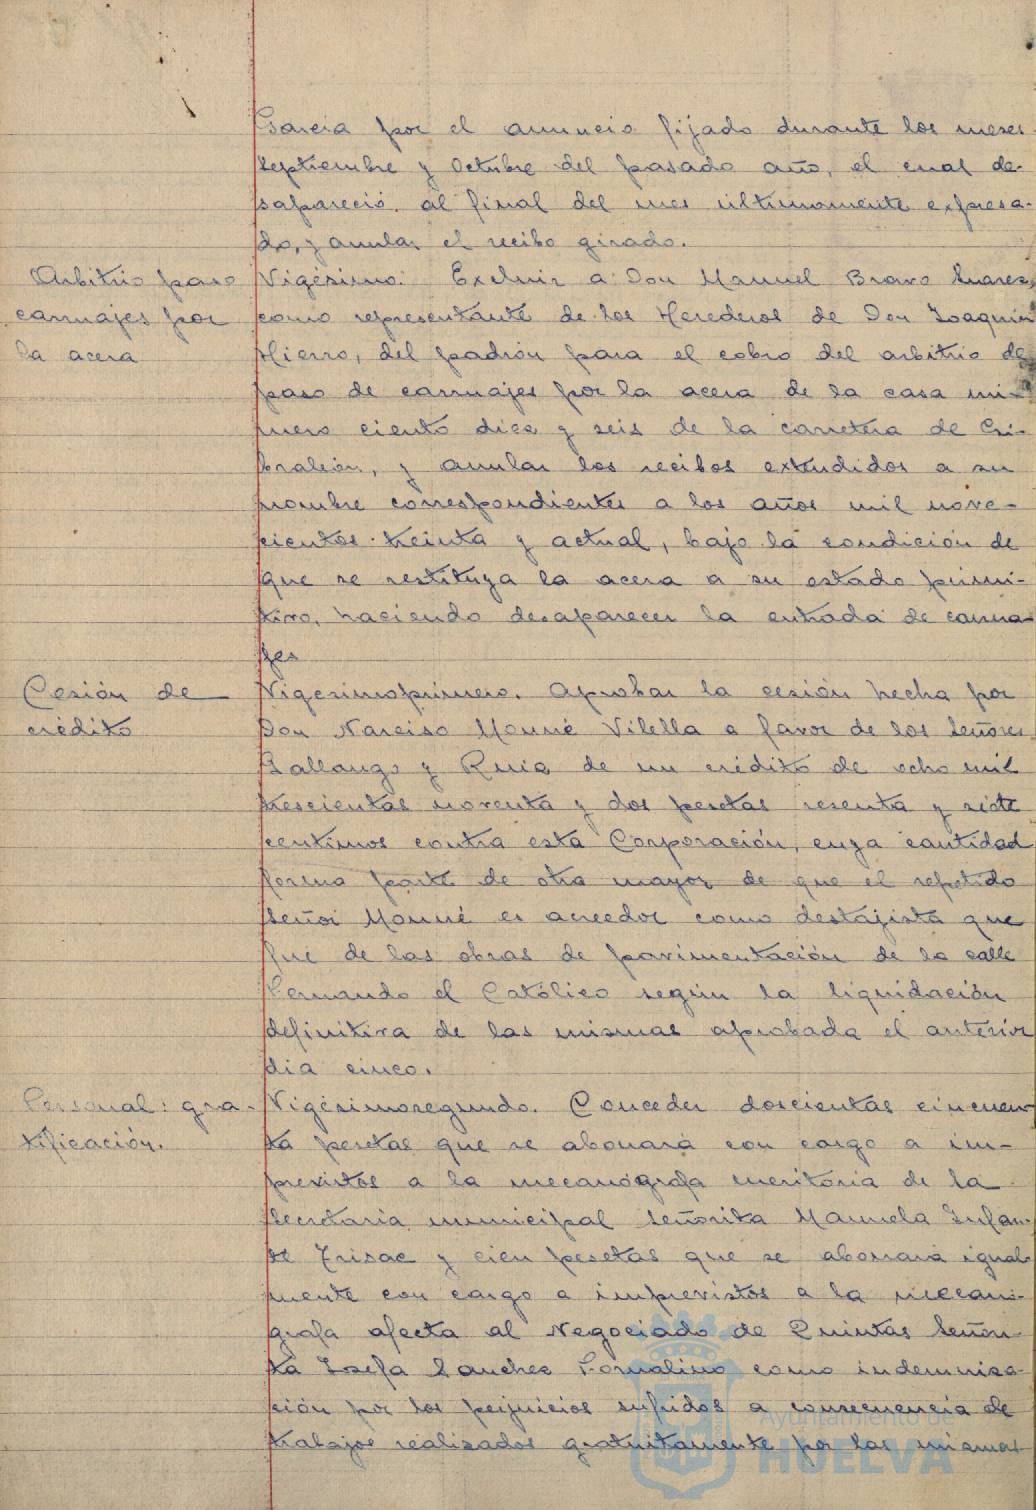 Garcia por el anuncio fijado durante los meses
Septiembre y Octubre del pasado año, el cual de-
sapareció al final del mes últimamente expresa-
do, y anular el recibo girado.
Arbitrio paso
carruajes por
la acera
Vigésimo. Excluir a Don Manuel Bravo Suarez,
como representante de los Herederos de Don Joaquin
Hierro, del padrón para el cobro del arbitrio de
paso de carruajes por la acera de la casa nú-
mero ciento diez y seis de la carretera de Gi-
braleón, y anular los recibos extendidos a su
nombre correspondientes a los años mil nove-
cientos treinta y actual, bajo la condición de
que se restituya la acera a su estado primi-
tivo, haciendo desaparecer la entrada de carrua-
jes
Cesión de
crédito
Vigesimoprimero. Aprobar la cesión hecha por
Don Narciso Monné Vilella a favor de los Señores
Ballango y Ruiz de un crédito de ocho mil
trescientas noventa y dos pesetas sesenta y siete
centimos contra esta Corporación, cuya cantidad
forma parte de otra mayor de que el repetido
Señor Monné es acreedor como destajista que
fué de las obras de pavimentación de la calle
Fernando el Católico según la liquidación
definitiva de las mismas aprobada el anterior
dia cinco.
Personal: gra-
tificación.
Vigésimosegundo. Conceder doscientas cincuen-
ta pesetas que se abonará con cargo a im-
previstos a la mecanógrafa meritoria de la
Secretaria municipal Señorita Manuela Infan-
te Trisac y cien pesetas que se abonará igual-
mente con cargo a imprevistos a la mecanó-
grafa afecta al Negociado de Quintas Señori-
ta Josefa Sanchez Fornalino como indemniza-
ción por los perjuicios sufridos a consecuencia de
trabajos realizados gratuitamente por las mismas
Ayuntamiento de
HUELVA